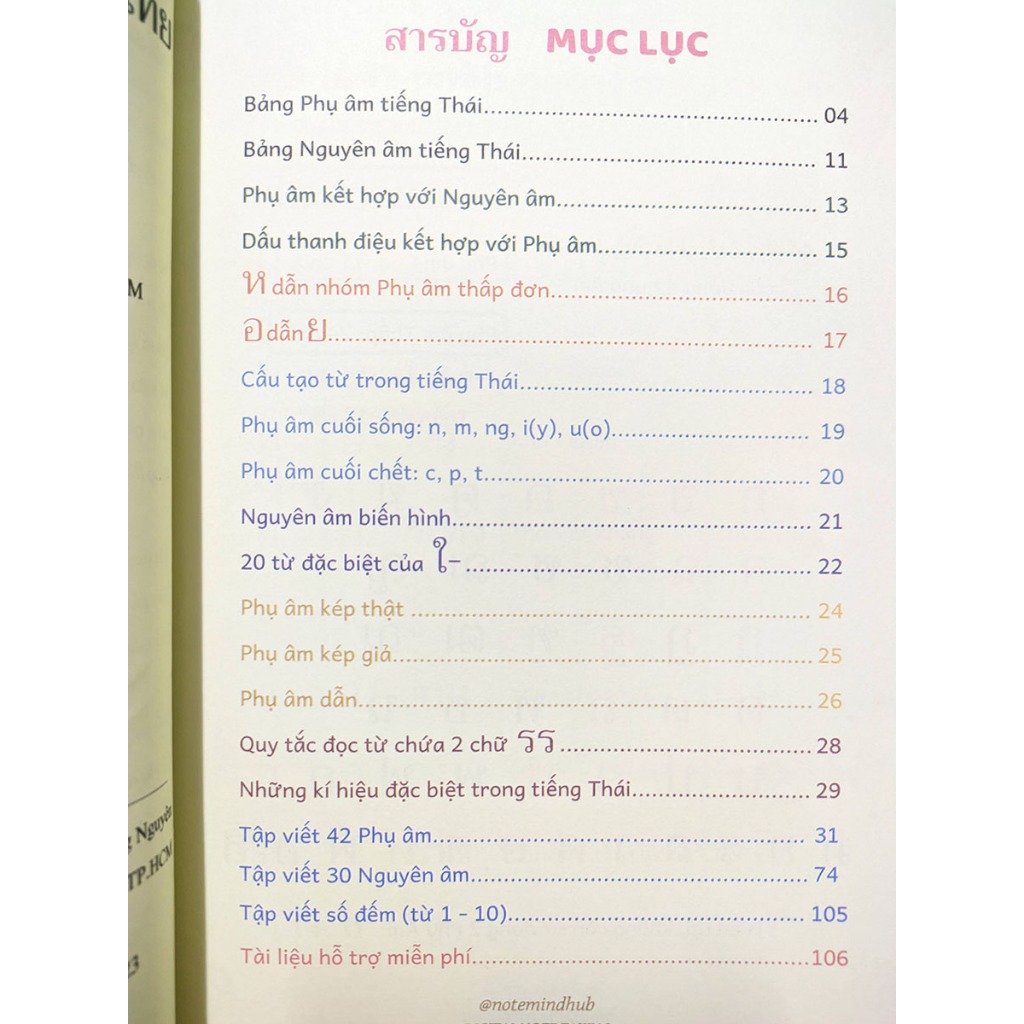 สารบัญ MỤC LỤC
Bảng Phụ âm tiếng Thái.................................................. 04
Bảng Nguyên âm tiếng Thái............................................ 11
Phụ âm kết hợp với Nguyên âm....................................... 13
Dấu thanh điệu kết hợp với Phụ âm................................. 15
ห dẫn nhóm Phụ âm thấp đơn....................................... 16
อ dẫn ย......................................................................... 17
Cấu tạo từ trong tiếng Thái............................................ 18
Phụ âm cuối sống: n, m, ng, i(y), u(o).............................. 19
Phụ âm cuối chết: c, p, t................................................. 20
Nguyên âm biến hình...................................................... 21
20 từ đặc biệt của ใ- .................................................... 22
Phụ âm kép thật ............................................................ 24
Phụ âm kép giả............................................................... 25
Phụ âm dẫn.................................................................... 26
Quy tắc đọc từ chứa 2 chữ รร ...................................... 28
Những kí hiệu đặc biệt trong tiếng Thái.......................... 29
Tập viết 42 Phụ âm........................................................ 31
Tập viết 30 Nguyên âm................................................... 74
Tập viết số đếm (từ 1 - 10)............................................. 105
Tài liệu hỗ trợ miễn phí...................................................106
@notemindhub
Nguyên
TP.HCM